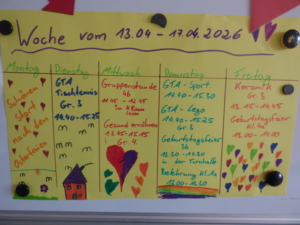 Woche vom 13.04 - 17.04.2026
Montag
Schönen
Start
nach den
Osterferien
Dienstag
GTA
Tischtennis
Gr. 3
14.40 - 15.25
Mittwoch
Gruppenstunde
4b
11.45 - 12.45
Gesund ernähren
13.45 - 15.15
Gr. 4
Donnerstag
GTA - Sport
14.40 - 15.30
GTA - Lego
14.40 - 15.25
Gr. 3
Geburtstagsfeier
3b
13.30 - 14.30
in der Turnhalle
Belehrung Kl. 1a
13.00 - 13.30
Freitag
Keramik
Gr. 3
13.15 - 14.45
Geburtstagsfeier